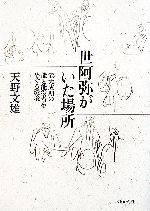 世阿弥が
いた場所
能大成期の
能と能役者を
めぐる環境
天野文雄